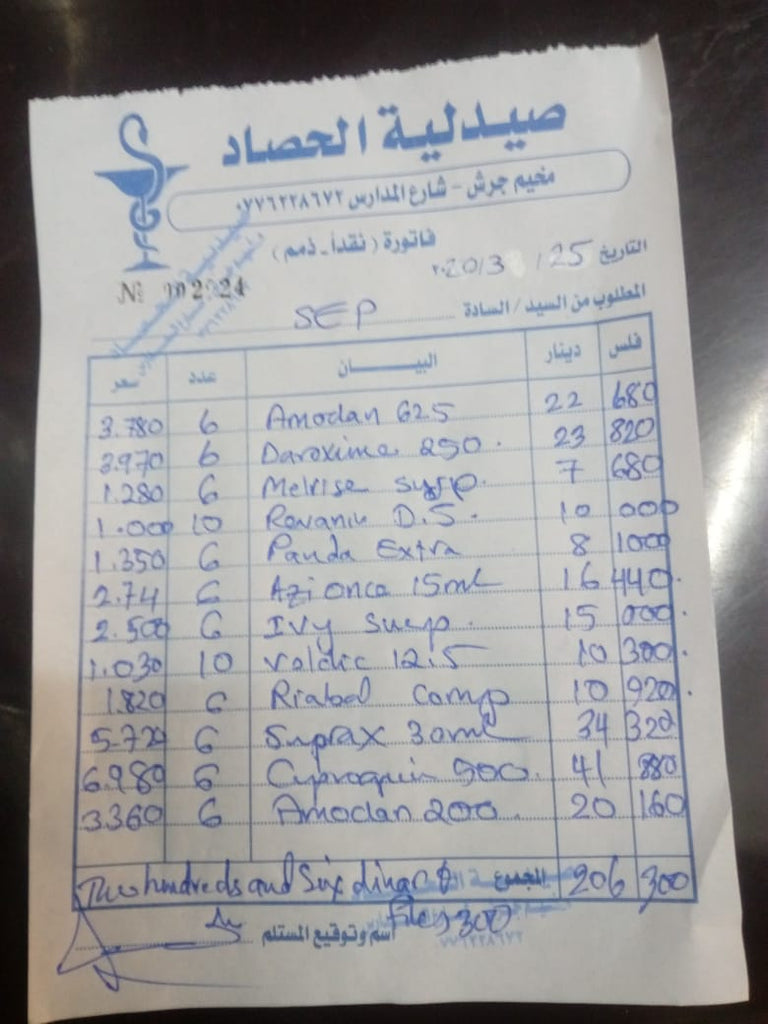 صيدلية الحصاد
مخيم جرش - شارع المدارس ٠٧٧٦٢٢٨٦٧٢
فاتورة (نقداً - ذمم)
التاريخ 25 / 3 / ٢٠20
№ 002024
المطلوب من السيد / السادة SEP
فلس دينار البيـــــان عدد سعر
3.780 6 Amodan 625 22 680
3.970 6 Daroxime 250. 23 820
1.280 6 Melrise syrp. 7 680
1.000 10 Revanin D.S. 10 000
1.350 6 Panda Extra 8 100
2.74 6 Azionce 15ml 16 440.
2.500 6 IVY Surp. 15 000.
1.030 10 Voldic 12.5 10 300.
1.820 6 Riabal Comp 10 920.
5.720 6 Suprax 30ml 34 320
6.980 6 Cuproquin 500. 41 880
3.360 6 Amodan 200. 20 160
Two hundreds and Six dinar & المجموع 206 300
files 300
اسم وتوقيع المستلم